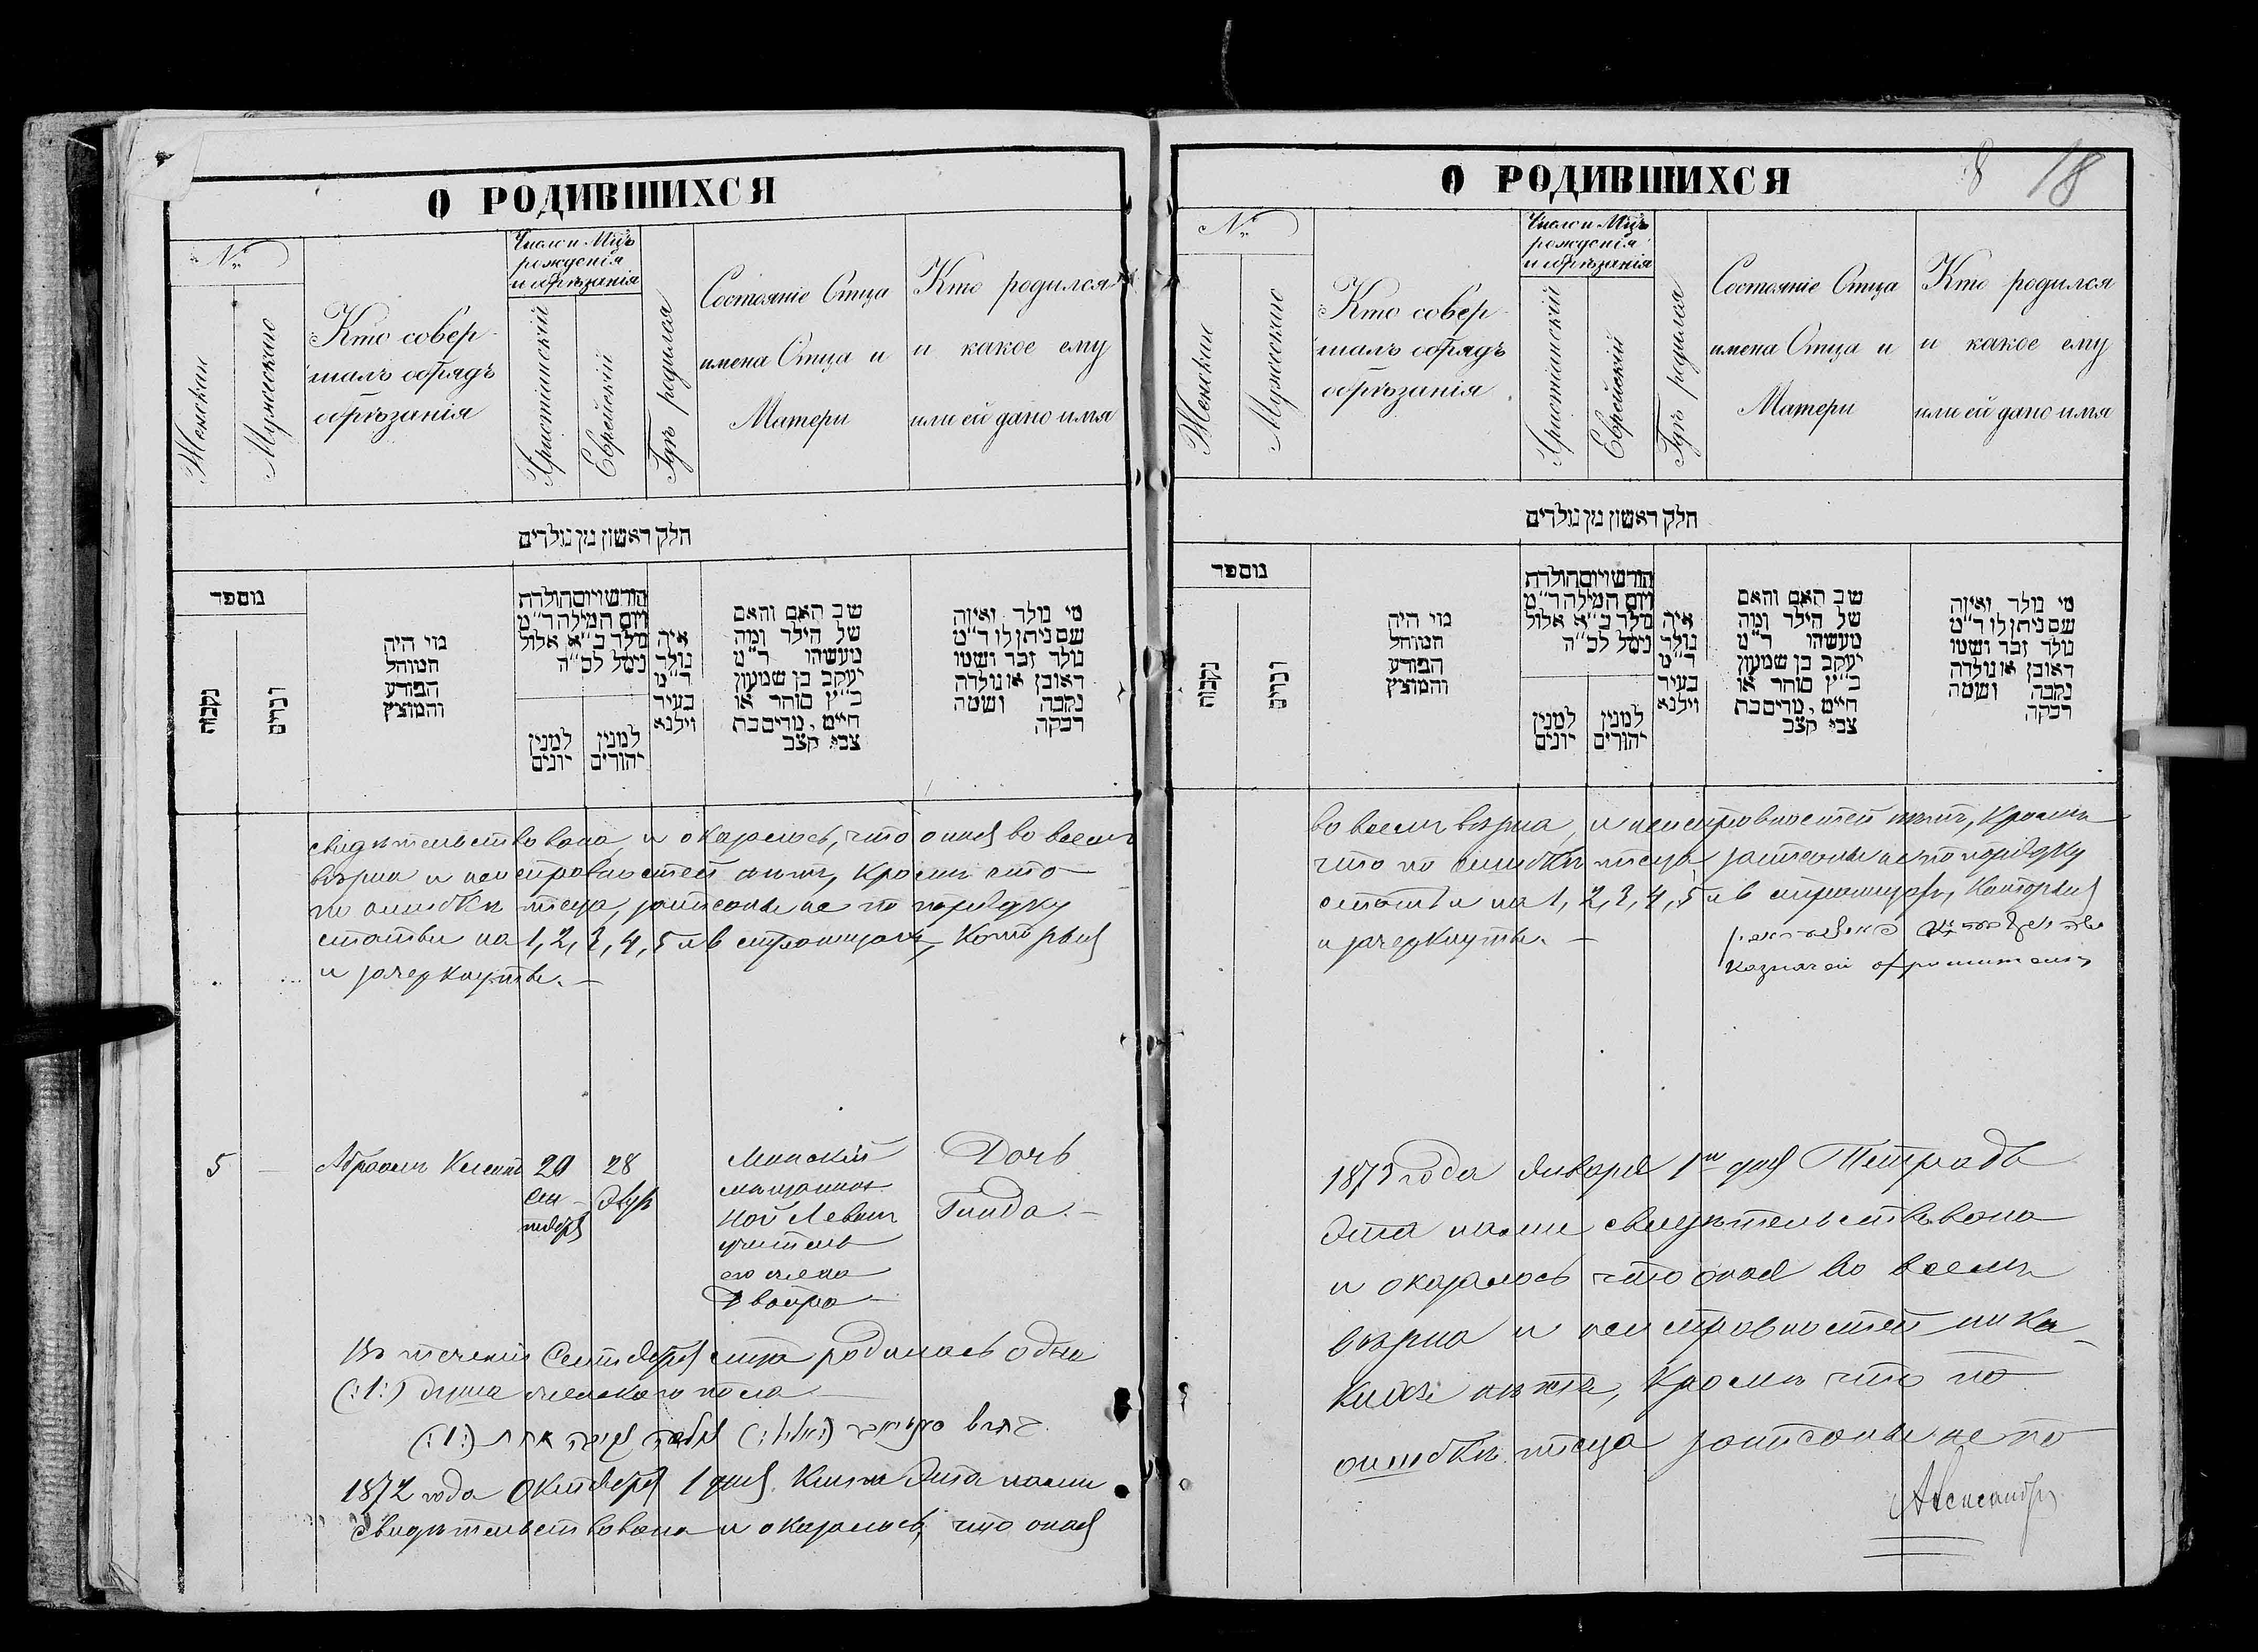 О РОДИВШИХСЯ
№
Женскiй
Мужескаго
Кто совер-
шалъ обрядъ
обрѣзанiя
Число и Мцъ
рожденiя
и обрѣзанiя
Христiанскiй
Еврейскiй
Гдѣ родился
Состоянiе Отца
имена Отца и
Матери
Кто родился
и какое ему
или ей дано имя
חלק ראשון מן נולדים
מוספר
נקבות
זכרים
מי היה
המוהל
הפורע
והמוצץ
חודש ויום הולדת
ויום המילה ד״מ
נולד ב״א אלול
נימל לס״ה
למנין
יונים
למנין
יהודים
איה
נולד
ד״מ
בעיר
וילנא
שב האם והאם
של הילד ומה
מעשהו ד״מ
יעקב בן שמעון
כ״ץ סוחר או
חיים, מרים בת
צבי קצב
מי נולד ואיזה
שם ניתן לו ד״מ
נולד זכר ושמו
ראובן או נולדה
נקבה ושמה
רבקה
свидѣтельствована и оказалось, что оная во всемъ
вѣрна и неисправностей нѣтъ, кромѣ что
по ошибкѣ писца, записаны не по порядку
статьи на 1, 2, 3, 4, 5 и 6 страницахъ, которыя
и зачеркнуты. —
5
—
Абрамъ
20
Сен-
тября
28
Минскiй
мѣщанин
учитель
его жена
Двойра
Дочь
Гинда. —
Въ теченiи Сентября мца родилась одна
(:1:) душа женскаго пола —
1872 года Октября 1 дня. Книга эта нами
свидѣтельствована и оказалось, что оная
О РОДИВШИХСЯ
8 18
№
Женскiй
Мужескаго
Кто совер-
шалъ обрядъ
обрѣзанiя
Число и Мцъ
рожденiя
и обрѣзанiя
Христiанскiй
Еврейскiй
Гдѣ родился
Состоянiе Отца
имена Отца и
Матери
Кто родился
и какое ему
или ей дано имя
חלק ראשון מן נולדים
מוספר
נקבות
זכרים
מוי היה
המוהל
הפורע
והמוצץ
חודש ויום הולדת
ויום המילה ד״מ
נולד ב״א אלול
נימל לס״ה
למנין
יונים
למנין
יהודים
איה
נולד
ד״מ
בעיר
וילנא
שב האם והאם
של הילד ומה
מעשהו ד״מ
יעקב בן שמעון
כ״ץ סוחר או
חיים, מרים בת
צבי קצב
מי נולד ואיזה
שם ניתן לו ד״מ
נולד זכר ושמו
ראובן או נולדה
נקבה ושמה
רבקה
во всемъ вѣрна, и неисправностей нѣтъ, кромѣ
что по ошибкѣ писца записаны не по порядку
статьи на 1, 2, 3, 4, 5 и 6 страницахъ, которыя
и зачеркнуты. —
Казначей
1873 года Января 1го дня Тетрадь
эта нами свидѣтельствована
и оказалось что оная во всемъ
вѣрна и неисправностей ника-
кихъ нѣтъ, кромѣ что по
ошибкѣ писца записаны не по